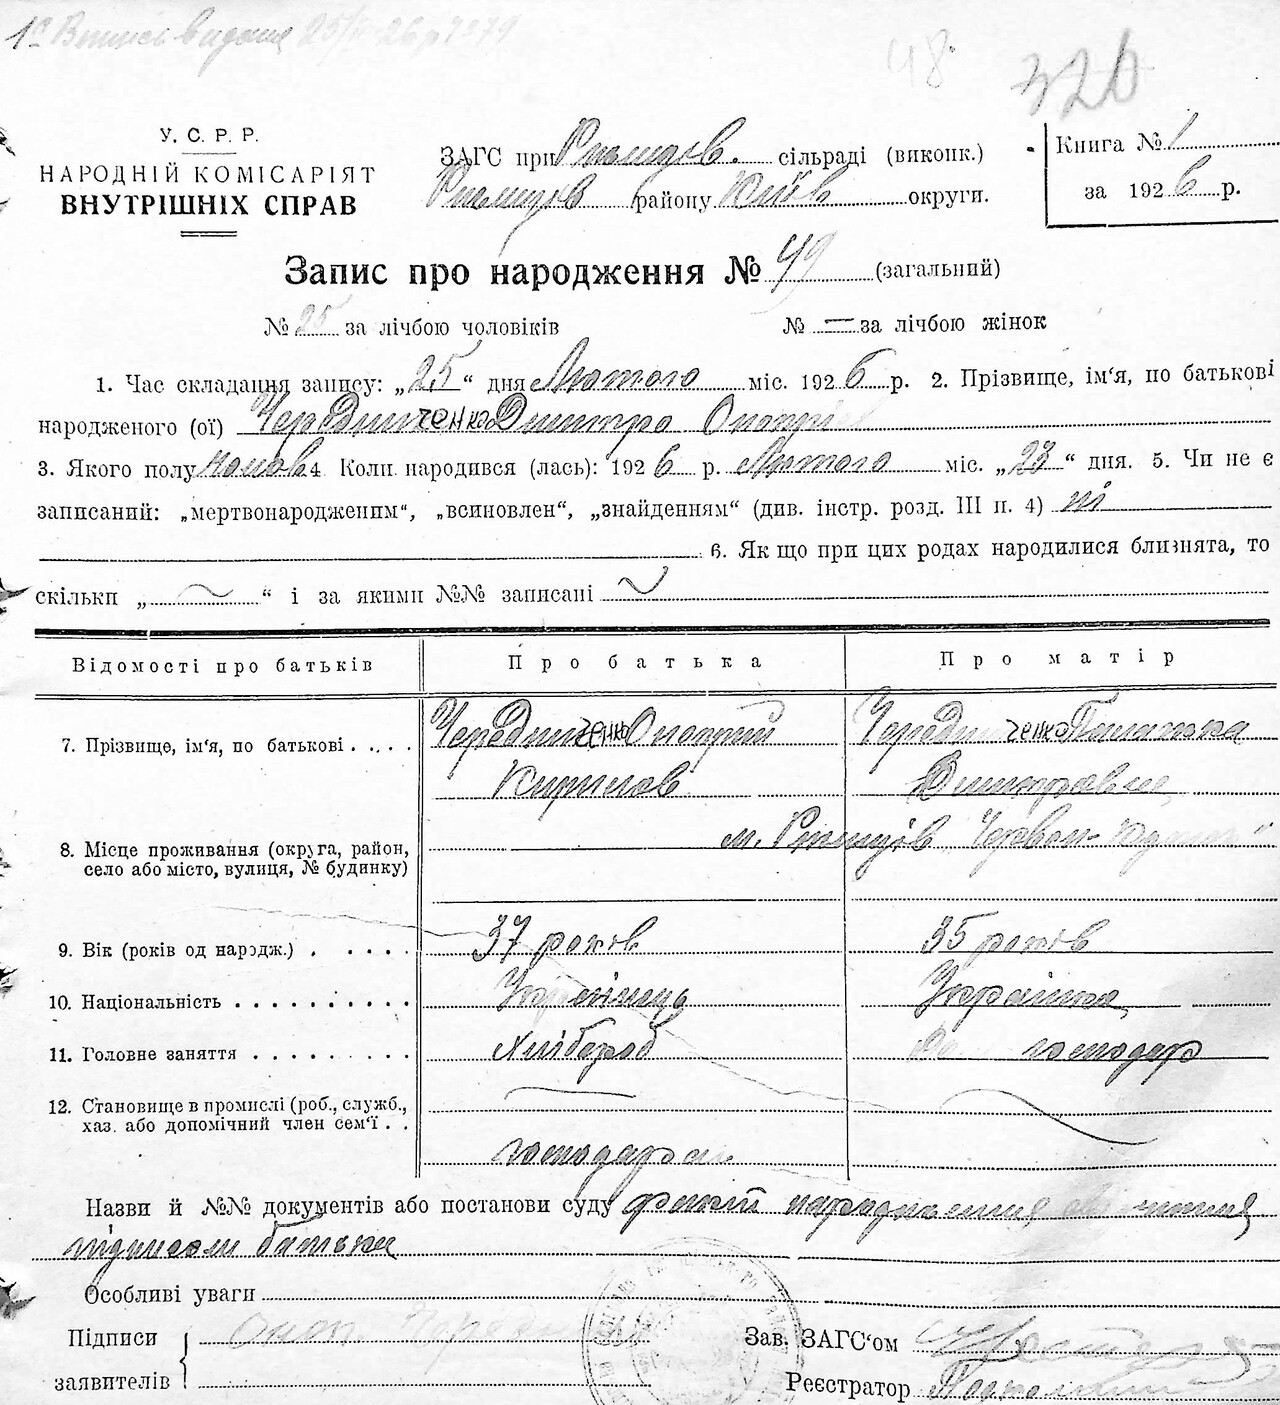 1а Виписі видана 25/
48
320
У. С. Р. Р.
НАРОДНІЙ КОМІСАРІЯТ
ВНУТРІШНІХ СПРАВ
ЗАГС при Ржищів. сільраді (виконк.)
Ржищів району Київ округи.
Книга № 1
за 1926 р.
Запис про народження № 49 (загальний)
№ 25 за лічбою чоловіків № — за лічбою жінок
1. Час складання запису: „25“ дня Лютого міс. 1926 р. 2. Прізвище, ім‘я, по батькові
народженого (ої) Чередниченко Дмитро Онопрі
3. Якого полу чолов 4 Коли народився (лась): 1926 р. Лютого міс. „23“ дня. 5. Чи не є
записаний: „мертвонародженим“, „всиновлен“, „знайденням“ (див. інстр. розд. III п. 4) ні
6. Як що при цих родах народилися близнята, то
скільки „ “ і за якими №№ записані
Відомості про батьків Про батька Про матір
7. Прізвище, ім‘я, по батькові . . . . Чередниченко Онопрій Чередниченко
Кирилов Дмитровна
8. Місце проживання (округа, район,
село або місто, вулиця, № будинку)
м. Ржищів Червон-
9. Вік (років од народж.) . . . . . 37 років 35 років
10. Національність . . . . . . . . . . Українець Українка
11. Головне заняття . . . . . . . . . Хлібороб господар
12. Становище в промислі (роб., служб.,
хаз. або допомічний член сем‘ї . .
господарем
Назви й №№ документів або постанови суду факт народження
підписом батька
Особливі уваги
Підписи
заявителів
Оноп. Чередн
Зав. ЗАГС‘ом
Реєстратор